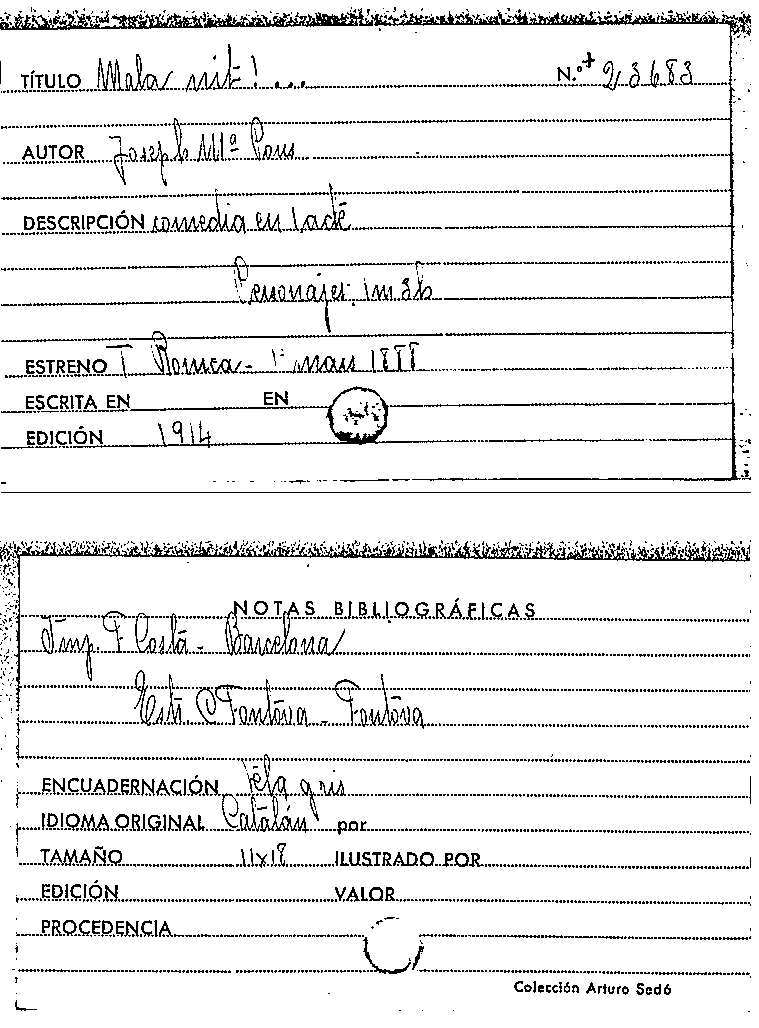 TÍTULO Mala nit!... N.º+ 23683
AUTOR Joseph Mª Pous
DESCRIPCIÓN comedia en 1 acte
Personajes. 1m 3h
ESTRENO T Romea - 1º mars 1888
ESCRITA EN EN
EDICIÓN 1914
NOTAS BIBLIOGRÁFICAS
Imp. F Costa - Barcelona
Estr C Fontova - Fontova
ENCUADERNACIÓN Tela gris
IDIOMA ORIGINAL Catalán por
TAMAÑO 11x18 ILUSTRADO POR
EDICIÓN VALOR
PROCEDENCIA
Colección Arturo Sedó